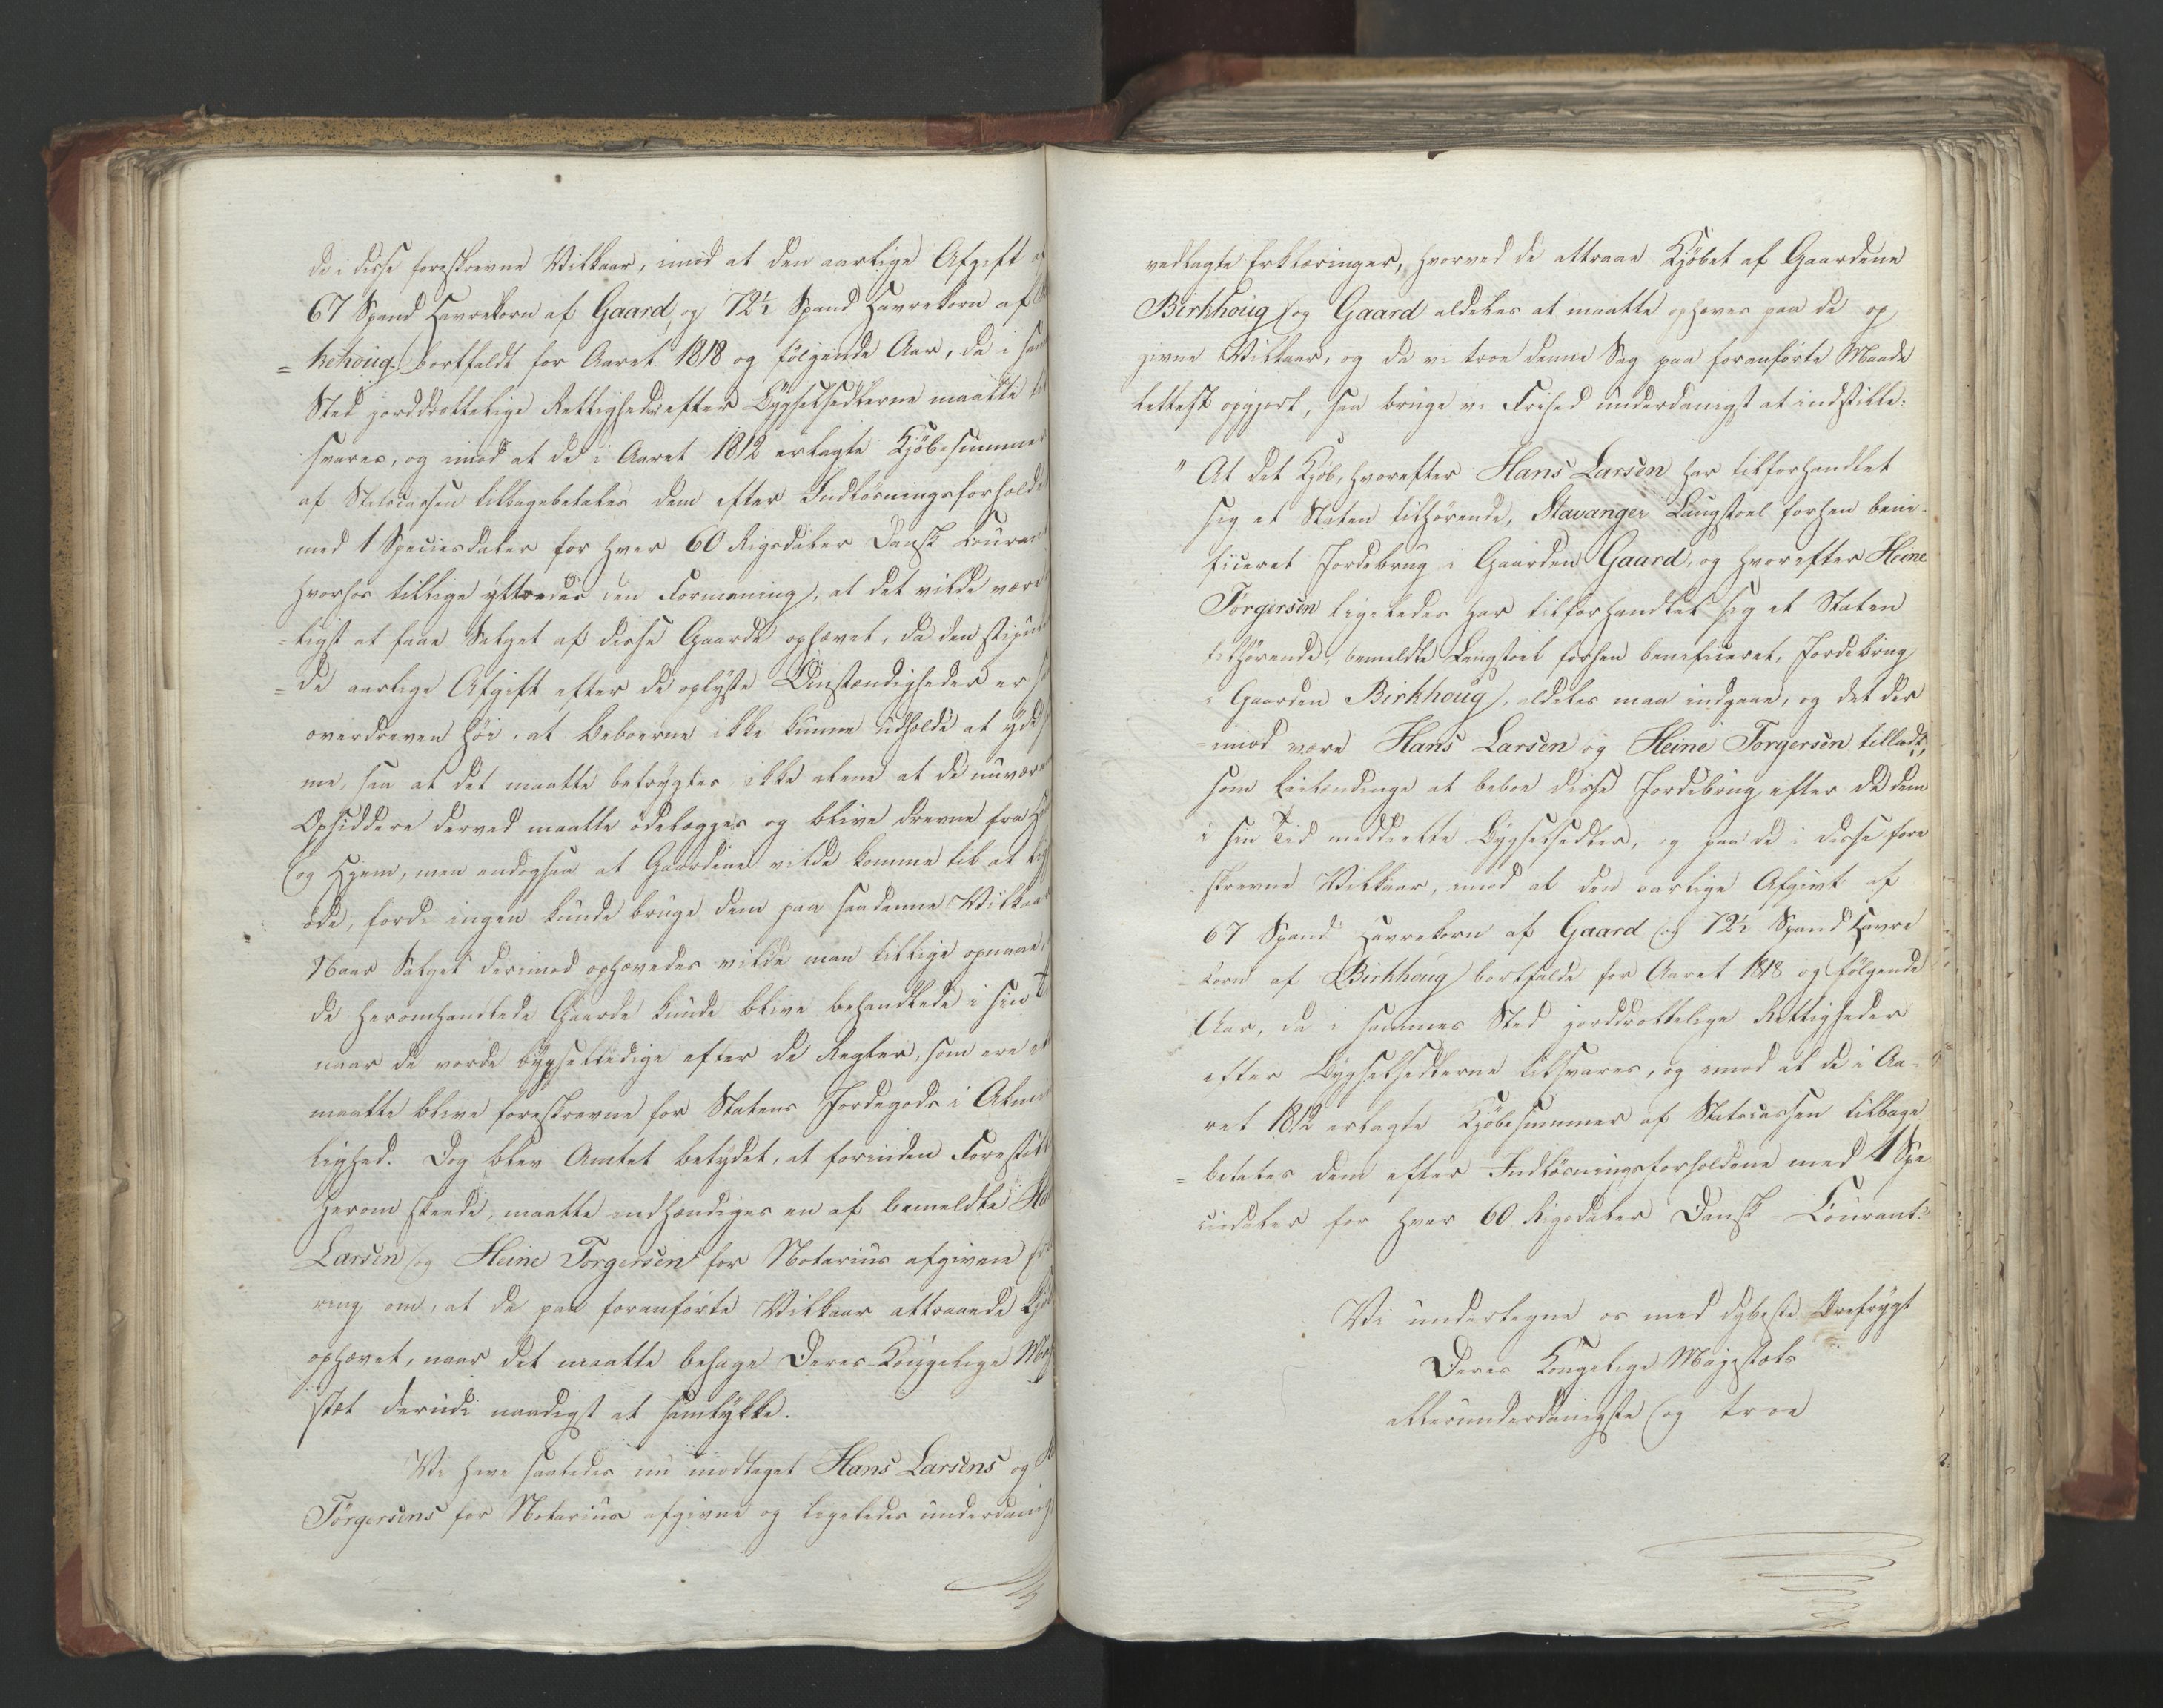 de i disse foreskrevne Vilkaar, imod at den aarlige Afgift
67 Spand Havrekorn af Gaard, og 72½ Spand Havrekorn af
=kehoug bortfaldt for Aaret 1818 og følgende Aar, da i
Sted jorddrottelige Rettigheder efter Bygselsedlerne maatte
svares, og imod at de i Aaret 1812 erlagte Kjøbesummer
af Statscassen tilbagebetales dem efter Indløsningsforholdet
med 1 Speciesdaler for hver 60 Rigsdaler Dansk Courant
hvorhos tillige yttredes den Formening, at det vilde være
=ligst at faae Salget af disse Gaarde ophævet, da den
=de aarlige Afgift efter de oplyste Omstændigheder er
overdreven høi, at Beboerne ikke kunne udholde at yde
me, saa at det maatte befrygtes ikke alene at de nuværen
Opsiddere derved maatte ødelægges og blive drevne fra
og Hjem, men endogsaa at Gaardene vilde komme til at
øde, fordi ingen kunde bruge dem paa saadanne Vilkaar
Naar Salget derimod ophævedes vilde man tillige opnaae,
de heromhandlede Gaarde kunde blive behandlede i sin
naar de vorde bygselledige efter de Regler, som ere
maatte blive foreskrevne for Statens Jordegods i Almin
lighed. Dog blev Amtet betydet, at forinden Forestill
herom skeede, maatte indhændiges en af bemeldte
Larsen og Heine Torgersen for Notarius afgiven
ring om, at de paa foranførte Vilkaar attraaede
ophævet, naar det maatte behage Deres Kongelige Maj
stæt derudi naadigst at samtykke.
Vi have saaledes nu modtaget Hans Larsens og
Torgersens for Notarius afgivne og ligeledes underdanigst
vedlagte Erklæringer, hvorved de attraae Kjøbet af Gaardene
Birkhoug og Gaard aldeles at maatte ophæves paa de op
givne Vilkaar, og da vi troe denne Sag paa foranførte Maade
lettest opgjort, saa bruge vi Frihed underdanigst at indstille:
"At det Kjøb, hvorefter Hans Larsen har tilforhandlet
sig et Staten tilhørende, Stavanger Laugstoel forhen bene-
ficeret Jordebrug i Gaarden Gaard, og hvorefter Heine
Torgersen ligeledes har tilforhandlet sig et Staten
tilhørende, bemeldte Laugstoel forhen beneficeret, Jordebrug
i Gaarden Birkhoug, aldeles maa indgaae, og det der
=imod være Hans Larsen og Heine Torgersen tilladt,
som Leilændinge at beboe disse Jordebrug efter de dem
i sin Tid meddeelte Bygselsedler, og paa de i disse fore
skrevne Vilkaar, imod at den aarlige Afgivt af
67 Spand Havrekorn af Gaard og 72½ Spand Havre
korn af Birkhoug bortfalde for Aaret 1818 og følgende
Aar, da i sammes Sted jorddrottelige Rettigheder
efter Bygselsedlerne tilsvares, og imod at de i Aa-
ret 1812 erlagte Kjøbesummer af Statscassen tilbage
=betales dem efter Indløsningsforholdene med 1 Spe
ciedaler for hver 60 Rigsdaler Dansk Courant."
Vi undertegne os med dybeste Ærefrygt
Deres Kongelige Majestæts
allerunderdanigste og troe